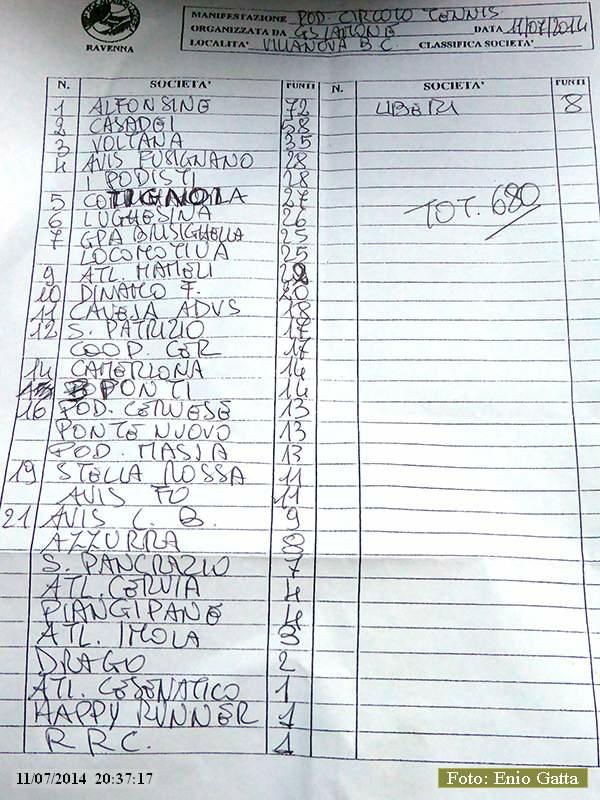 RAVENNA
MANIFESTAZIONE POD. CIRCOLO TENNIS
ORGANIZZATA DA GS LAMONE DATA 11/07/2014
LOCALITA' VILLANOVA B C. CLASSIFICA SOCIETA'
N. SOCIETA' PUNTI N. SOCIETA' PUNTI
1 ALFONSINE 72 LIBERI 8
2 CASADEI 58
3 VOLTANA 35
4 AVIS FUSIGNANO 28
I PODISTI 28
5 COTIGNOLA 27
TOT. 680
6 LUGHESINA 26
7 GPA BRISIGHELLA 25
LOCOMOTIVA 25
9 ATL. MAMELI
10 DINAMO F. 20
11 CAVEJA ADVS 18
12 S. PATRIZIO 17
COOP. CER 17
14 CAMERLONA 14
PONTI 14
16 POD. CERVESE 13
PONTE NUOVO 13
POD. MASIA 13
19 STELLA ROSSA 11
AVIS FO 11
21 AVIS C. B. 9
AZZURRA 8
S. PANCRAZIO 7
ATL. CERVIA 4
PIANGIPANE 4
ATL. IMOLA 3
DRAGO 2
ATL. CESENATICO 1
HAPPY RUNNER 1
R R C. 1
11/07/2014 20:37:17
Foto: Enio Gatta